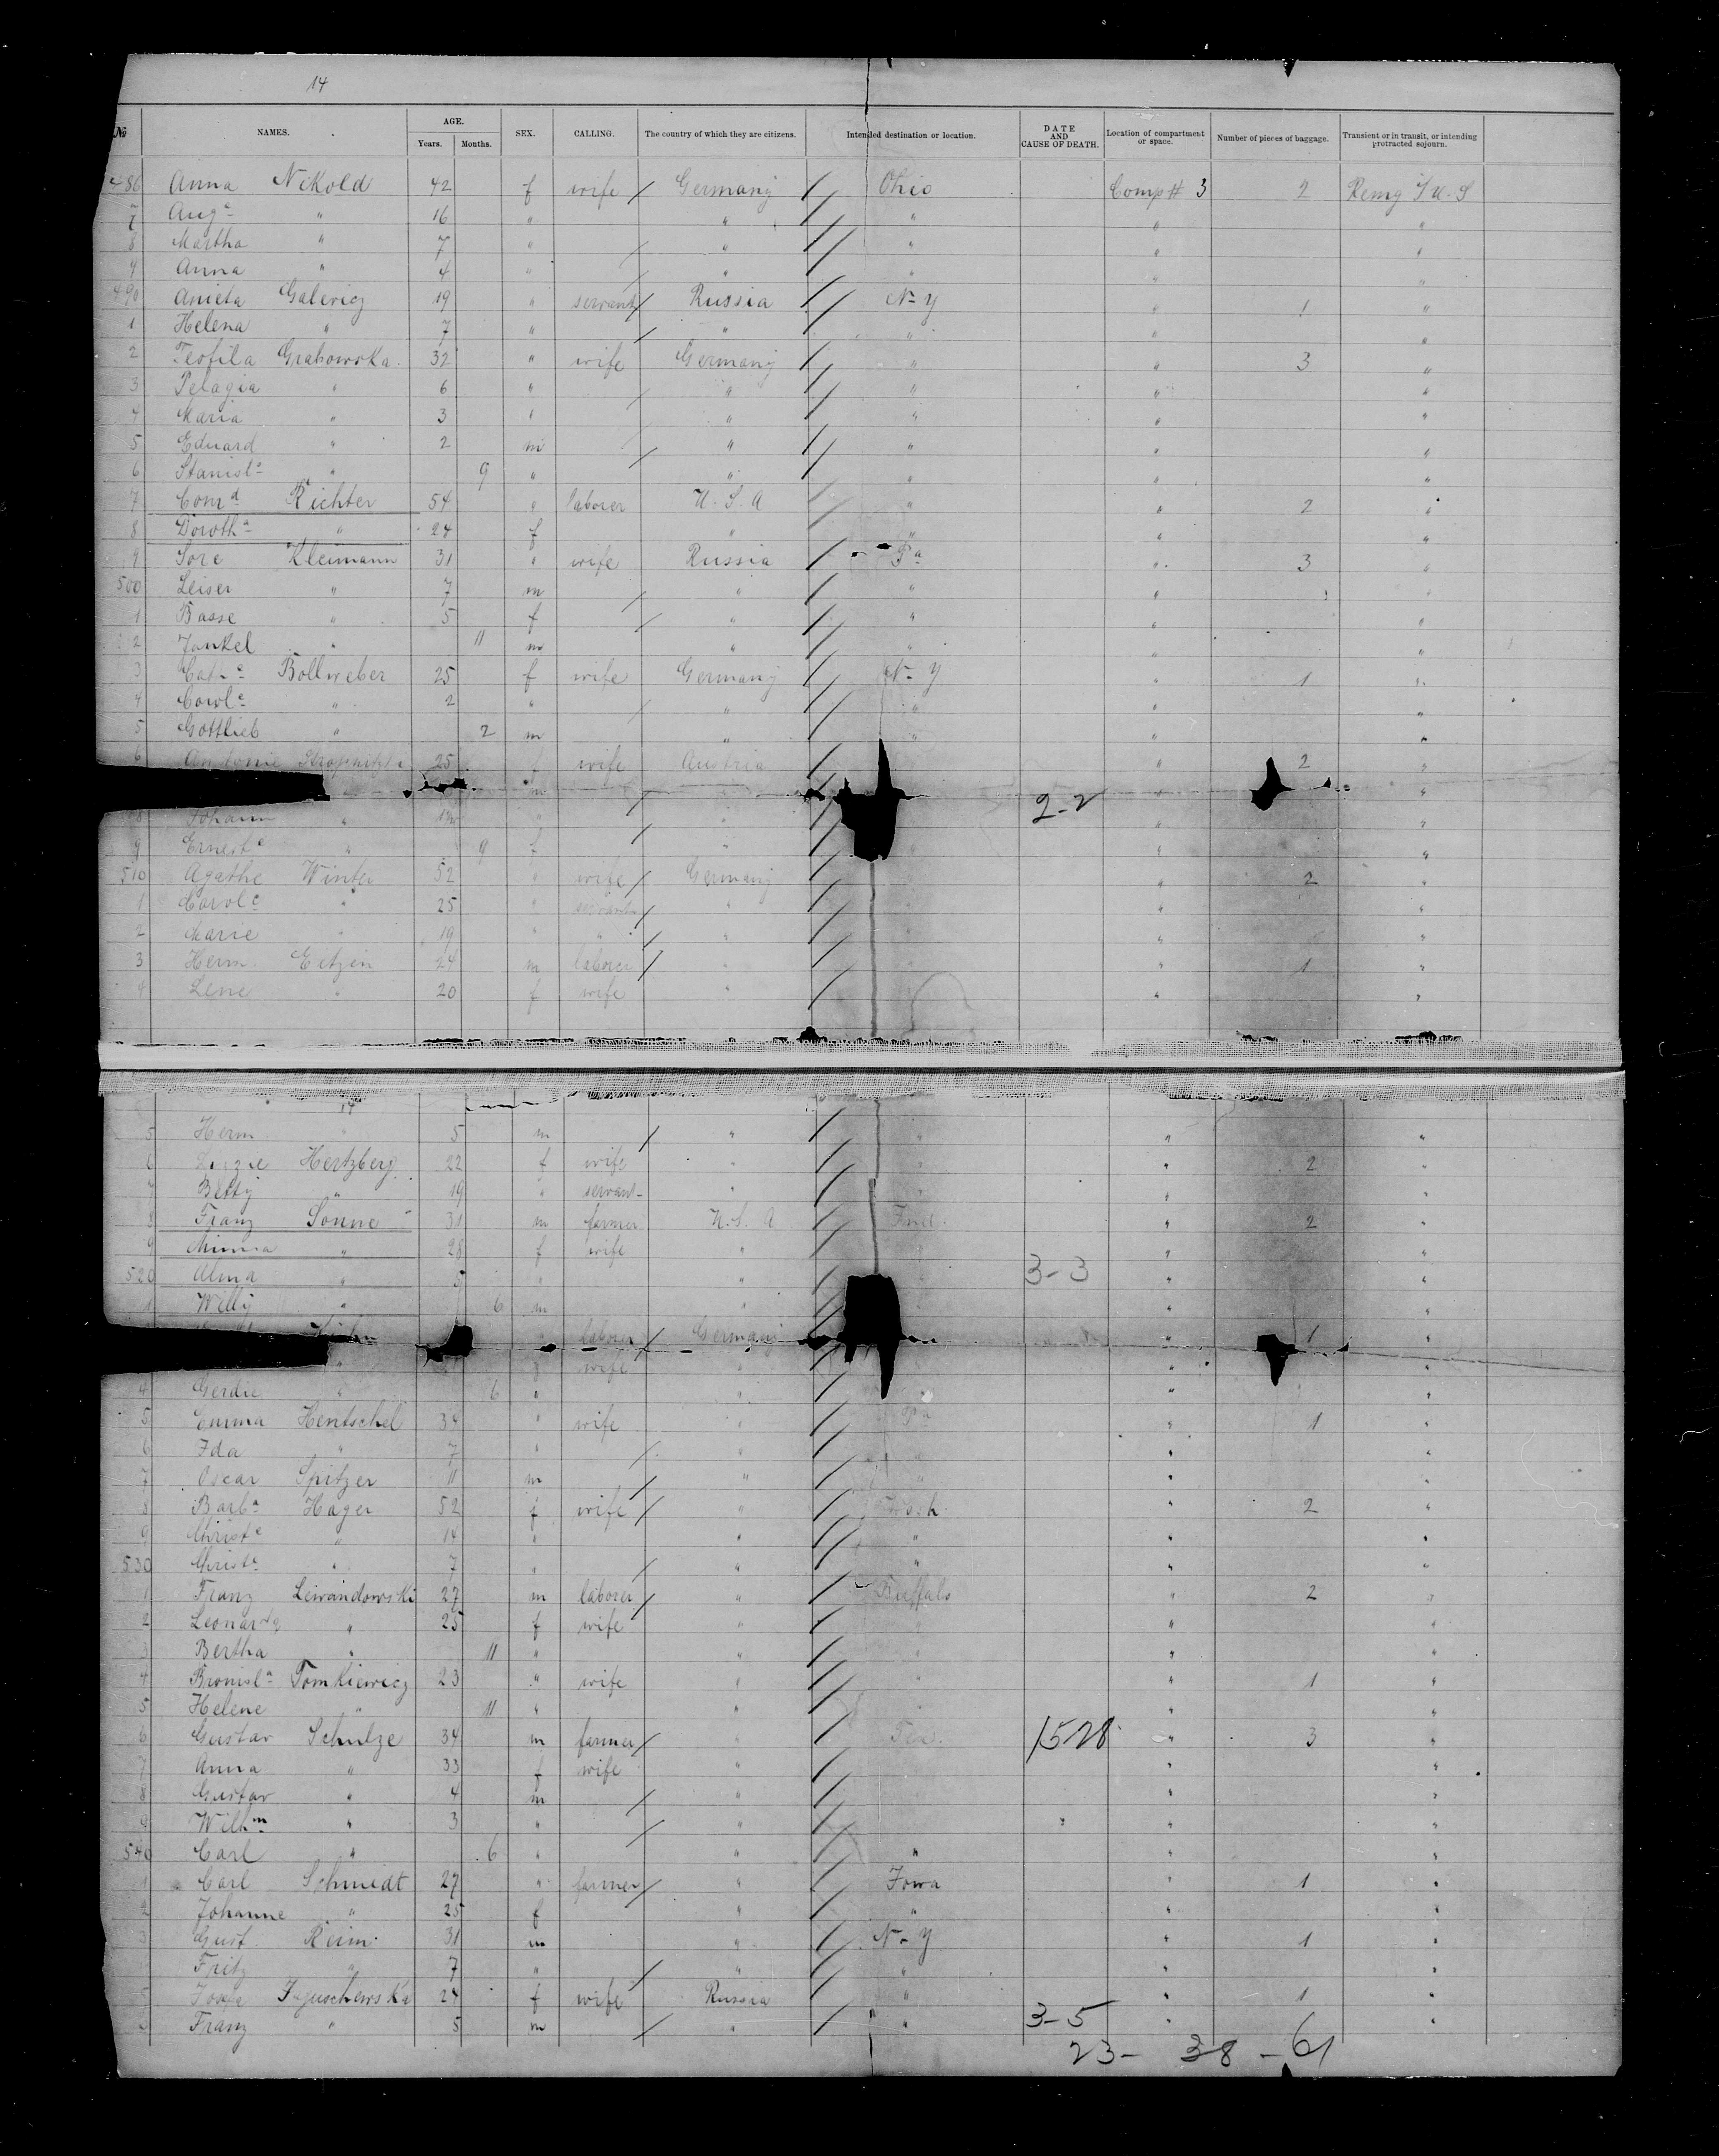 14
№ NAMES. AGE. Years. Months. SEX. CALLING. The country of which they are citizens. Intended destination or location. DATE AND CAUSE OF DEATH. Location of compartment or space. Number of pieces of baggage. Transient or in transit, or intending protracted sojourn.
486 Anna Nikold 42 f wife Germany Ohio Comp # 3 2
7 Augᵉ " 16 " " " " "
8 Martha " 7 " " " " "
9 Anna " 4 " " " " "
490 Anieta Galevicz 19 " servant Russia N-Y " 1 "
1 Helena " 7 " " " " "
2 Teofila Grabowska 32 " wife Germany " " 3 "
3 Pelagia " 6 " " " " "
4 Maria " 3 " " " " "
5 Eduard " 2 m " " " "
6 Stanislᵃ " 9 " " " " "
7 Conrᵈ Richter 54 " laborer U. S. A " " 2 "
8 Dorothᵃ " 24 f " " " "
9 Sore Kleimann 31 " wife Russia Pa " 3 "
500 Leiser " 7 m " " " "
1 Basse " 5 f " " " "
2 Jankel " 11 m " " " "
3 Bollweber 25 f wife Germany N-Y " 1 "
4 " 2 " " " " "
5 Gottlieb " 2 m " " " "
6 Antonie 25 f wife Austria " 2 "
m " "
8 Johann " " " " " 2-2
9 Ernestᵉ " 9 f " " " "
510 Agathe Winter 52 " wife Germany " 2 "
1 Carolᵉ " 25 " servant " " "
2 Marie " 19 " " " " "
3 Herm. Eitzen 24 m laborer " " 1 "
4 Lene " 20 f wife " " "
14
5 Herm. " 5 m " " "
6 Hertzberg 22 f wife " " 2 "
7 Betty " 19 " servant " " "
8 Franz Sonne 31 m farmer U. S. A Ind. " 2 "
9 Minna " 28 f wife " " "
520 Alma " 5 " " 3-3 " "
1 Willy " 6 m " " "
" laborer Germany " 1 "
" f wife " " "
4 Gerdie " 6 " " " " "
5 Emma Hentschel 34 " wife " Pa " 1 "
6 Ida " 7 " " " "
7 Oscar Spitzer 11 m " " " "
8 Barbᵃ Hager 52 f wife " " 2 "
9 Christᵉ " 14 " " " " "
530 Christᵃ " 7 " " " " "
1 Franz Lewandowski 27 m laborer " Buffalo " 2 "
2 Leonarda " 25 f wife " " " "
3 Bertha " 11 " " " "
4 Bronislᵃ Tomkiewicz 23 " wife " " " 1 "
5 Helene " 11 " " " " "
6 Gustav Schulze 34 m farmer " Tex. 1528 " 3 "
7 Anna " 33 f wife " " "
8 Gustav " 4 m " " "
9 Wilhᵐ " 3 " " " "
540 Carl " 6 " " " " "
1 Carl Schmidt 27 " farmer " Iowa " 1 "
2 Johanne " 25 f " " " "
3 Gust. Reim 31 m " N-Y " 1 "
Fritz " 7 " " " " "
24 f wife Russia " " 1 "
Franz " 5 m " " 3-5 " "
23- 38 - 61